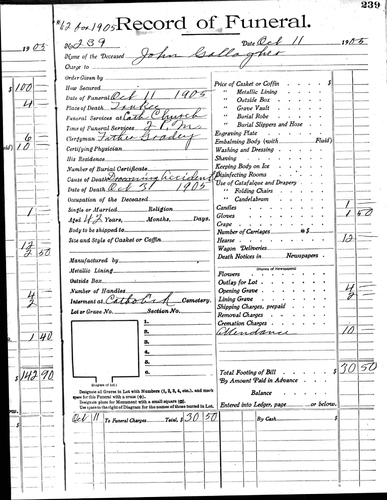 239
#12 for 1905
Record of Funeral.
1905
No. 239
Date Oct 11 1905
Name of the Deceased John Gallagher
Charge to
Order Given by
Hour Secured
Date of Funeral Oct 11 1905
Place of Death
Funeral Services at Cath Church
Time of Funeral Services 2 P.M.
Clergyman Father Bradley
Certifying Physician
His Residence
Number of Burial Certificate
Cause of Death Drowning Accident
Date of Death Oct 1905
Occupation of the Deceased
Single or Married Religion
Aged 42 Years, Months, Days.
Body to be shipped to
Size and Style of Casket or Coffin
Manufactured by
Metallic Lining
Outside Box
Number of Handles
Interment at Catholick Cemetery.
Lot or Grave No. Section No.
1.
2.
3.
4.
5.
6.
(Diagram of Lot.)
Designate all Graves in Lot with Numbers (1, 2, 3, 4, etc.), and mark
space for this Funeral with a cross (+).
Designate place for Monument with a small square (□).
Use space to the right of Diagram for the names of those buried in Lot.
Price of Casket or Coffin $
" Metallic Lining
" Outside Box
" Grave Vault
" Burial Robe
" Burial Slippers and Hose
Engraving Plate
Embalming Body (with Fluid)
Washing and Dressing
Shaving
Keeping Body on Ice
Disinfecting Rooms
Use of Catafalque and Drapery
" Folding Chairs
" Candelabrum
Candles 1
Gloves 1 50
Crape
Number of Carriages @ $
Hearse 12
Wagon Deliveries
Death Notices in Newspapers
(Names of Newspapers)
Flowers
Outlay for Lot
Opening Grave 4
Lining Grave 2
Shipping Charges, prepaid
Removal Charges
Cremation Charges
Attendance 10
Total Footing of Bill $ 30 50
By Amount Paid in Advance
Balance
Entered into Ledger, page or below.
Oct 11 To Funeral Charges Total, $ 30 50 By Cash $
$ 100
4
6
10
1
12
2 50
4
2
1 40
$ 142 90